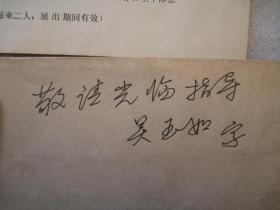 每柬二人，展出期间有效）
敬请光临指导
吴玉如字